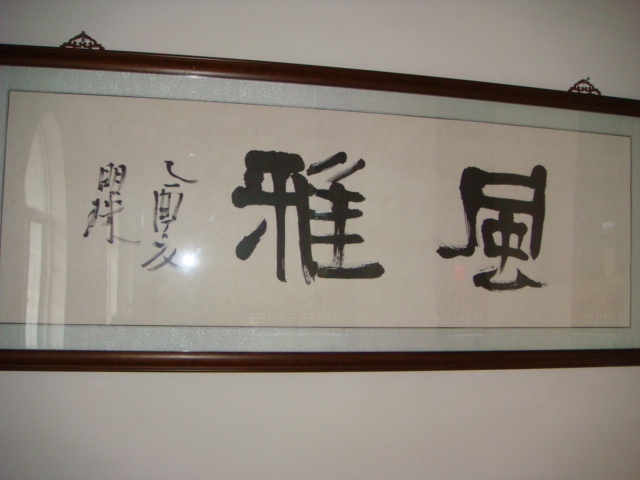 風雅
乙酉夏
明珠